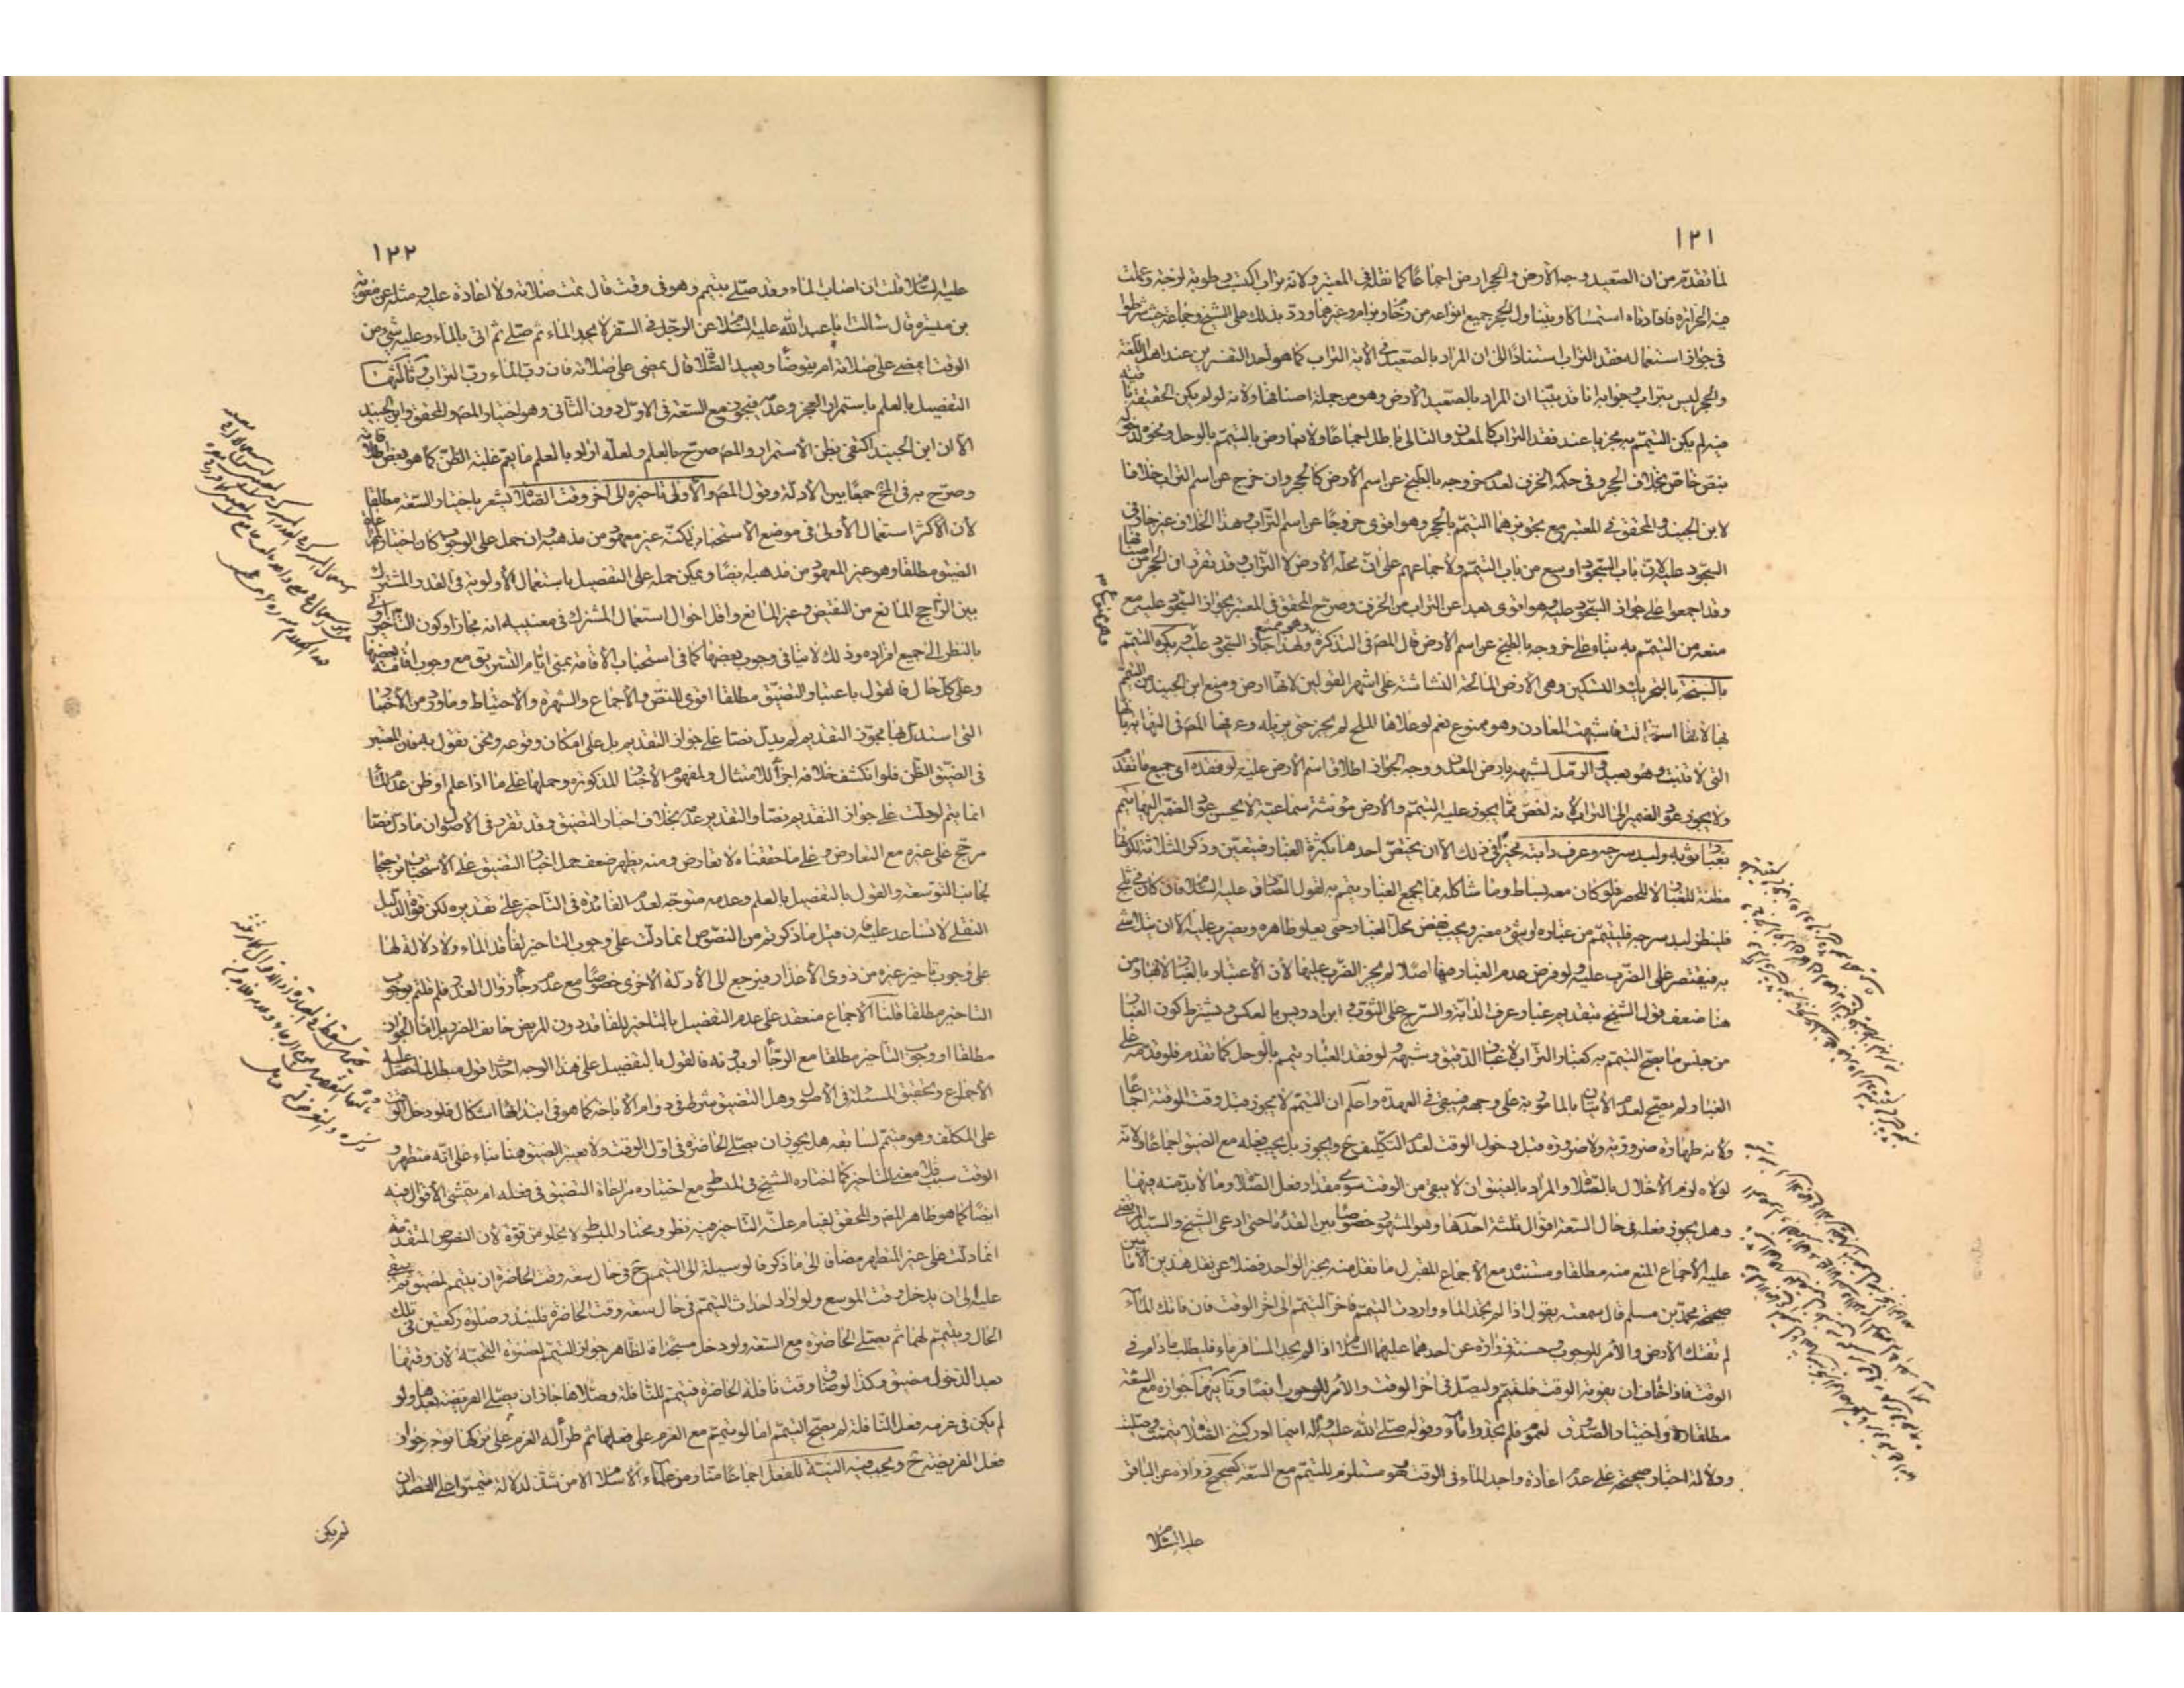 ١٢١
لما تقدم من ان الصعيد وجه الارض والحجر ارض اجماعا كما نقله في المعتبر ولانه تراب اكتسب رطوبة لزجة وعملت
فيه الحرارة فافادته استمساكا ويتناول الحجر جميع انواعه من رخام وبرام وغيرهما ورد بذلك على الشيخ وجماعة حيث شرطوا
في جواز استعماله فقد التراب استنادا الى ان المراد بالصعيد في الآية التراب كما هو احد التفسيرين عند اهل اللغة
والحجر ليس بتراب وجوابه انا قد بينا ان المراد بالصعيد الارض وهو من جملة اصنافها ولانه لو لم يكن الحقيقة ثابتة
فيه لم يكن التيمم به مجزيا عند فقد التراب كالمعدن والتالي باطل اجماعا ولا تعارض بالتيمم بالوحل ونحوه لدخوله
بنص خاص بخلاف الحجر وفي حكمه الخزف لعدم خروجه بالطبخ عن اسم الارض كالحجر وان خرج عن اسم التراب خلافا
لابن الجنيد والمحقق في المعتبر مع تجويزهما التيمم بالحجر وهو اقوى خروجا عن اسم التراب وهذا الخلاف غير جار في
السجود عليه لان باب السجود اوسع من باب التيمم ولاجماعهم على ان محله الارض لا التراب وقد تقرر ان الحجر من اصنافها
وقد اجمعوا على جواز السجود عليه وهو اقوى بعدا عن التراب من الخزف وصرح المحقق في المعتبر بجواز السجود عليه مع
منعه من التيمم به بناء على خروجه بالطبخ عن اسم الارض قال المص في التذكرة ولهذا جاز السجود عليه ويكره التيمم
بالسبخة بالتحريك والتسكين وهي الارض المالحة النشاشة على اشهر القولين لانها ارض ومنع ابن الجنيد من التيمم
بها لانها استحالت فاشبهت المعادن وهو ممنوع نعم لو علاها الملح لم يجز حتى يزيله وعرفها المص في النهاية بانها
التي لا تنبت وهو بعيد والرمل لشبهه بارض المعدن ووجه الجواز اطلاق اسم الارض عليه لو فقده اى جميع ما تقدم
ولا يجوز عود الضمير الى التراب لانه اخص مما يجوز عليه التيمم والارض مؤنثة سماعية لا يحسن عود الضمير اليها تيمم
بغبار ثوبه ولبد سرجه وعرف دابته مخيرا في ذلك الا ان يختص احدها بكثرة الغبار فيتعين وذكر الثلاثة لكونها
مظنة للغبار لا للحصر فلو كان معه بساط وما شاكله مما يجمع الغبار تيمم به لقول الصادق عليه السلام فان كان في ثلج
فلينظر لبد سرجه فليتيمم من غباره او شئ مغبر ويجب نفض محل الغبار حتى يعلو ظاهره ويضرب عليه الا ان يتلاشى
به فيقتصر على الضرب عليه ولو فرض عدم الغبار فيها اصلا لم يجز الضرب عليها لان الاعتبار بالغبار لا بها ومن
هنا ضعف قول الشيخ بتقديم غبار عرف الدابة والسرج على الثوب وابن ادريس بالعكس ويشترط كون الغبار
من جنس ما يصح التيمم به كغبار التراب لا غبار الدقيق وشبهه ولو فقد الغبار تيمم بالوحل كما تقدم فلو قدمه على
الغبار لم يصح لعدم الاتيان بالمامور به على وجهه فيبقى في العهدة واعلم ان التيمم لا يجوز قبل وقت الموقتة اجماعا
ولانه طهارة ضرورية ولا ضرورة قبل دخول الوقت لعدم التكليف ح ويجوز بل يجب فعله مع الضيق اجماعا ولانه
لولاه لزم الاخلال بالصلوة والمراد بالضيق ان لا يبقى من الوقت سوى مقدار فعل الصلاة وما لا بد منه فيها
وهل يجوز فعله في حال السعة اقوال ثلثة احدها وهو المشهور خصوصا بين القدماء حتى ادعى الشيخ والسيد المرتضى
عليه الاجماع المنع منه مطلقا ومستنده مع الاجماع المقبول ما نقل منه بخبر الواحد فضلا عن نقل هذين الامامين
صحيحة محمد بن مسلم قال سمعته يقول اذا لم تجد الماء واردت التيمم فاخر التيمم الى اخر الوقت فان فاتك الماء
لم تفتك الارض والامر للوجوب وحسنة زرارة عن احدهما عليهما السلام اذا لم يجد المسافر ماء فليطلب ما دام في
الوقت فاذا خاف ان يفوته الوقت فليتيمم وليصل في اخر الوقت والامر للوجوب ايضا وثانيها جوازه مع السعة
مطلقا واختاره الصدوق لعموم فلم تجدوا ماء وقوله صلى الله عليه وآله اينما ادركتني الصلاة تيممت وصليت
ودلالة اخبار صحيحة على عدم اعادة واجد الماء في الوقت وهو مستلزم للتيمم مع السعة كصحيح زرارة عن الباقر
عليه السلام
١٢٢
عليه السلام قلت ان اصاب الماء وقد صلى بتيمم وهو في وقت قال تمت صلاته ولا اعادة عليه ومثله عن معوية
بن ميسرة قال سالت ابا عبد الله عليه السلام عن الرجل في السفر لا يجد الماء ثم صلى ثم اتى بالماء وعليه شئ من
الوقت ايمضى على صلاته ام يتوضأ ويعيد الصلاة قال يمضى على صلاته فان رب الماء رب التراب وثالثها
التفصيل بالعلم باستمرار العجز وعدمه فيجوز مع السعة في الاول دون الثاني وهو اختيار المص والمحقق وابن الجنيد
الا ان ابن الجنيد اكتفى بظن الاستمرار والمص صرح بالعلم ولعله اراد بالعلم ما يعم غلبة الظن كما هو بعض اطلاقاته
وصرح به في جمعا بين الادلة وقول المص والاولى تاخيره الى اخر وقت الصلاة يشعر باختيار السعة مطلقا
لان الاكثر استعمال الاولى في موضع الاستحباب لكنه غير معهود من مذهبه وان حمل على الوجوب كان اختيارا لمراعاة
الضيق مطلقا وهو غير المعهود من مذهبه ايضا ويمكن حمله على التفصيل باستعمال الاولوية في القدر المشترك
بين الراجح المانع من النقيض وغير المانع واقل احوال استعمال المشترك في معنييه انه مجاز او كون التاخير اولى
بالنظر الى جميع افراده وذلك لا ينافي وجوب بعضها كما في استحباب الاقامة بمنى ايام التشريق مع وجوب اقامة بعضها
وعلى كل حال فالقول باعتبار التضيق مطلقا اقوى للنص والاجماع والشهرة والاحتياط وما ورد من الاخبار
التي استدل بها مجوز التقديم لم يدل نصا على جواز التقديم بل على امكان وقوعه ونحن نقول به فان المعتبر
في الضيق الظن فلو انكشف خلافه اجزأ للامتثال ولمفهوم الاخبار المذكورة وحملها على ما اذا علم او ظن عدم الماء
انما يتم لو دلت على جواز التقديم نصا والتقدير عدمه بخلاف اخبار التضيق وقد تقرر في الاصول ان ما دل نصا
مرجح على غيره مع التعارض وعلى ما حققناه لا تعارض ومنه يظهر ضعف حمل اخبار التضيق على الاستحباب ترجيحا
لجانب التوسعة والقول بالتفصيل بالعلم وعدمه متوجه لعدم الفائدة في التاخير على تقديره لكن قوة الدليل
النقلي لا تساعد عليه فان قيل ما ذكرتم من النصوص انما دلت على وجوب التاخير لفاقد الماء ولا دلالة لها
على وجوب تاخير غيره من ذوى الاعذار فيرجع الى الادلة الاخرى خصوصا مع عدم رجاء زوال العذر فلم قلتم بوجوب
التاخير مطلقا قلنا الاجماع منعقد على عدم التفصيل بالتاخير للفاقد دون المريض خائف الضرر بل اما الجواز
مطلقا او وجوب التاخير مطلقا مع الرجاء او بدونه فالقول بالتفصيل على هذا الوجه احداث قول مبطل لما حصل عليه
الاجماع وتحقيق المسئلة في الاصول وهل التضيق شرط في دوام الاباحة كما هو في ابتدائها اشكال فلو دخل الوقت
على المكلف وهو متيمم لسابقة هل يجوز ان يصلي الحاضرة في اول الوقت ولا يعتبر الضيق هنا بناء على انه متطهر و
الوقت سبب فلا معنى للتاخير كما اختاره الشيخ في المبسوط مع اختياره مراعاة التضيق في فعله ام يتمشى الاقوال فيه
ايضا كما هو ظاهر المص والمحقق لقيام علة التاخير فيه نظر ومختار المبسوط لا يخلو من قوة لان النصوص المتقدمة
انما دلت على غير المتطهر مضافا الى ما ذكر فالوسيلة الى التيمم ح في حال سعة وقت الحاضرة ان يتيمم لمضيق ثم يبقى
عليه الى ان يدخل وقت الموسع ولو اراد احداث التيمم في حال سعة وقت الحاضرة فلينذر صلوة ركعتين في تلك
الحال ويتيمم لهما ثم يصلي الحاضرة مع السعة ولو دخل مسجدا فالظاهر جواز التيمم لصلوة التحية لان وقتها
بعد الدخول مضيق وكذا لو ضاق وقت نافلة الحاضرة فتيمم للنافلة وصلاها جاز ان يصلي الفريضة بعدها ولو
لم يكن في عزمه فعل النافلة لم يصح التيمم اما لو تيمم مع العزم على فعلها ثم طرأ له العزم على تركها توجه جواز
فعل الفريضة ح ويجب فيه النية للفعل اجماعا منا ومن علماء الاسلام الا من شذ لدلالة فتيمموا على القصد ان
لم يكن